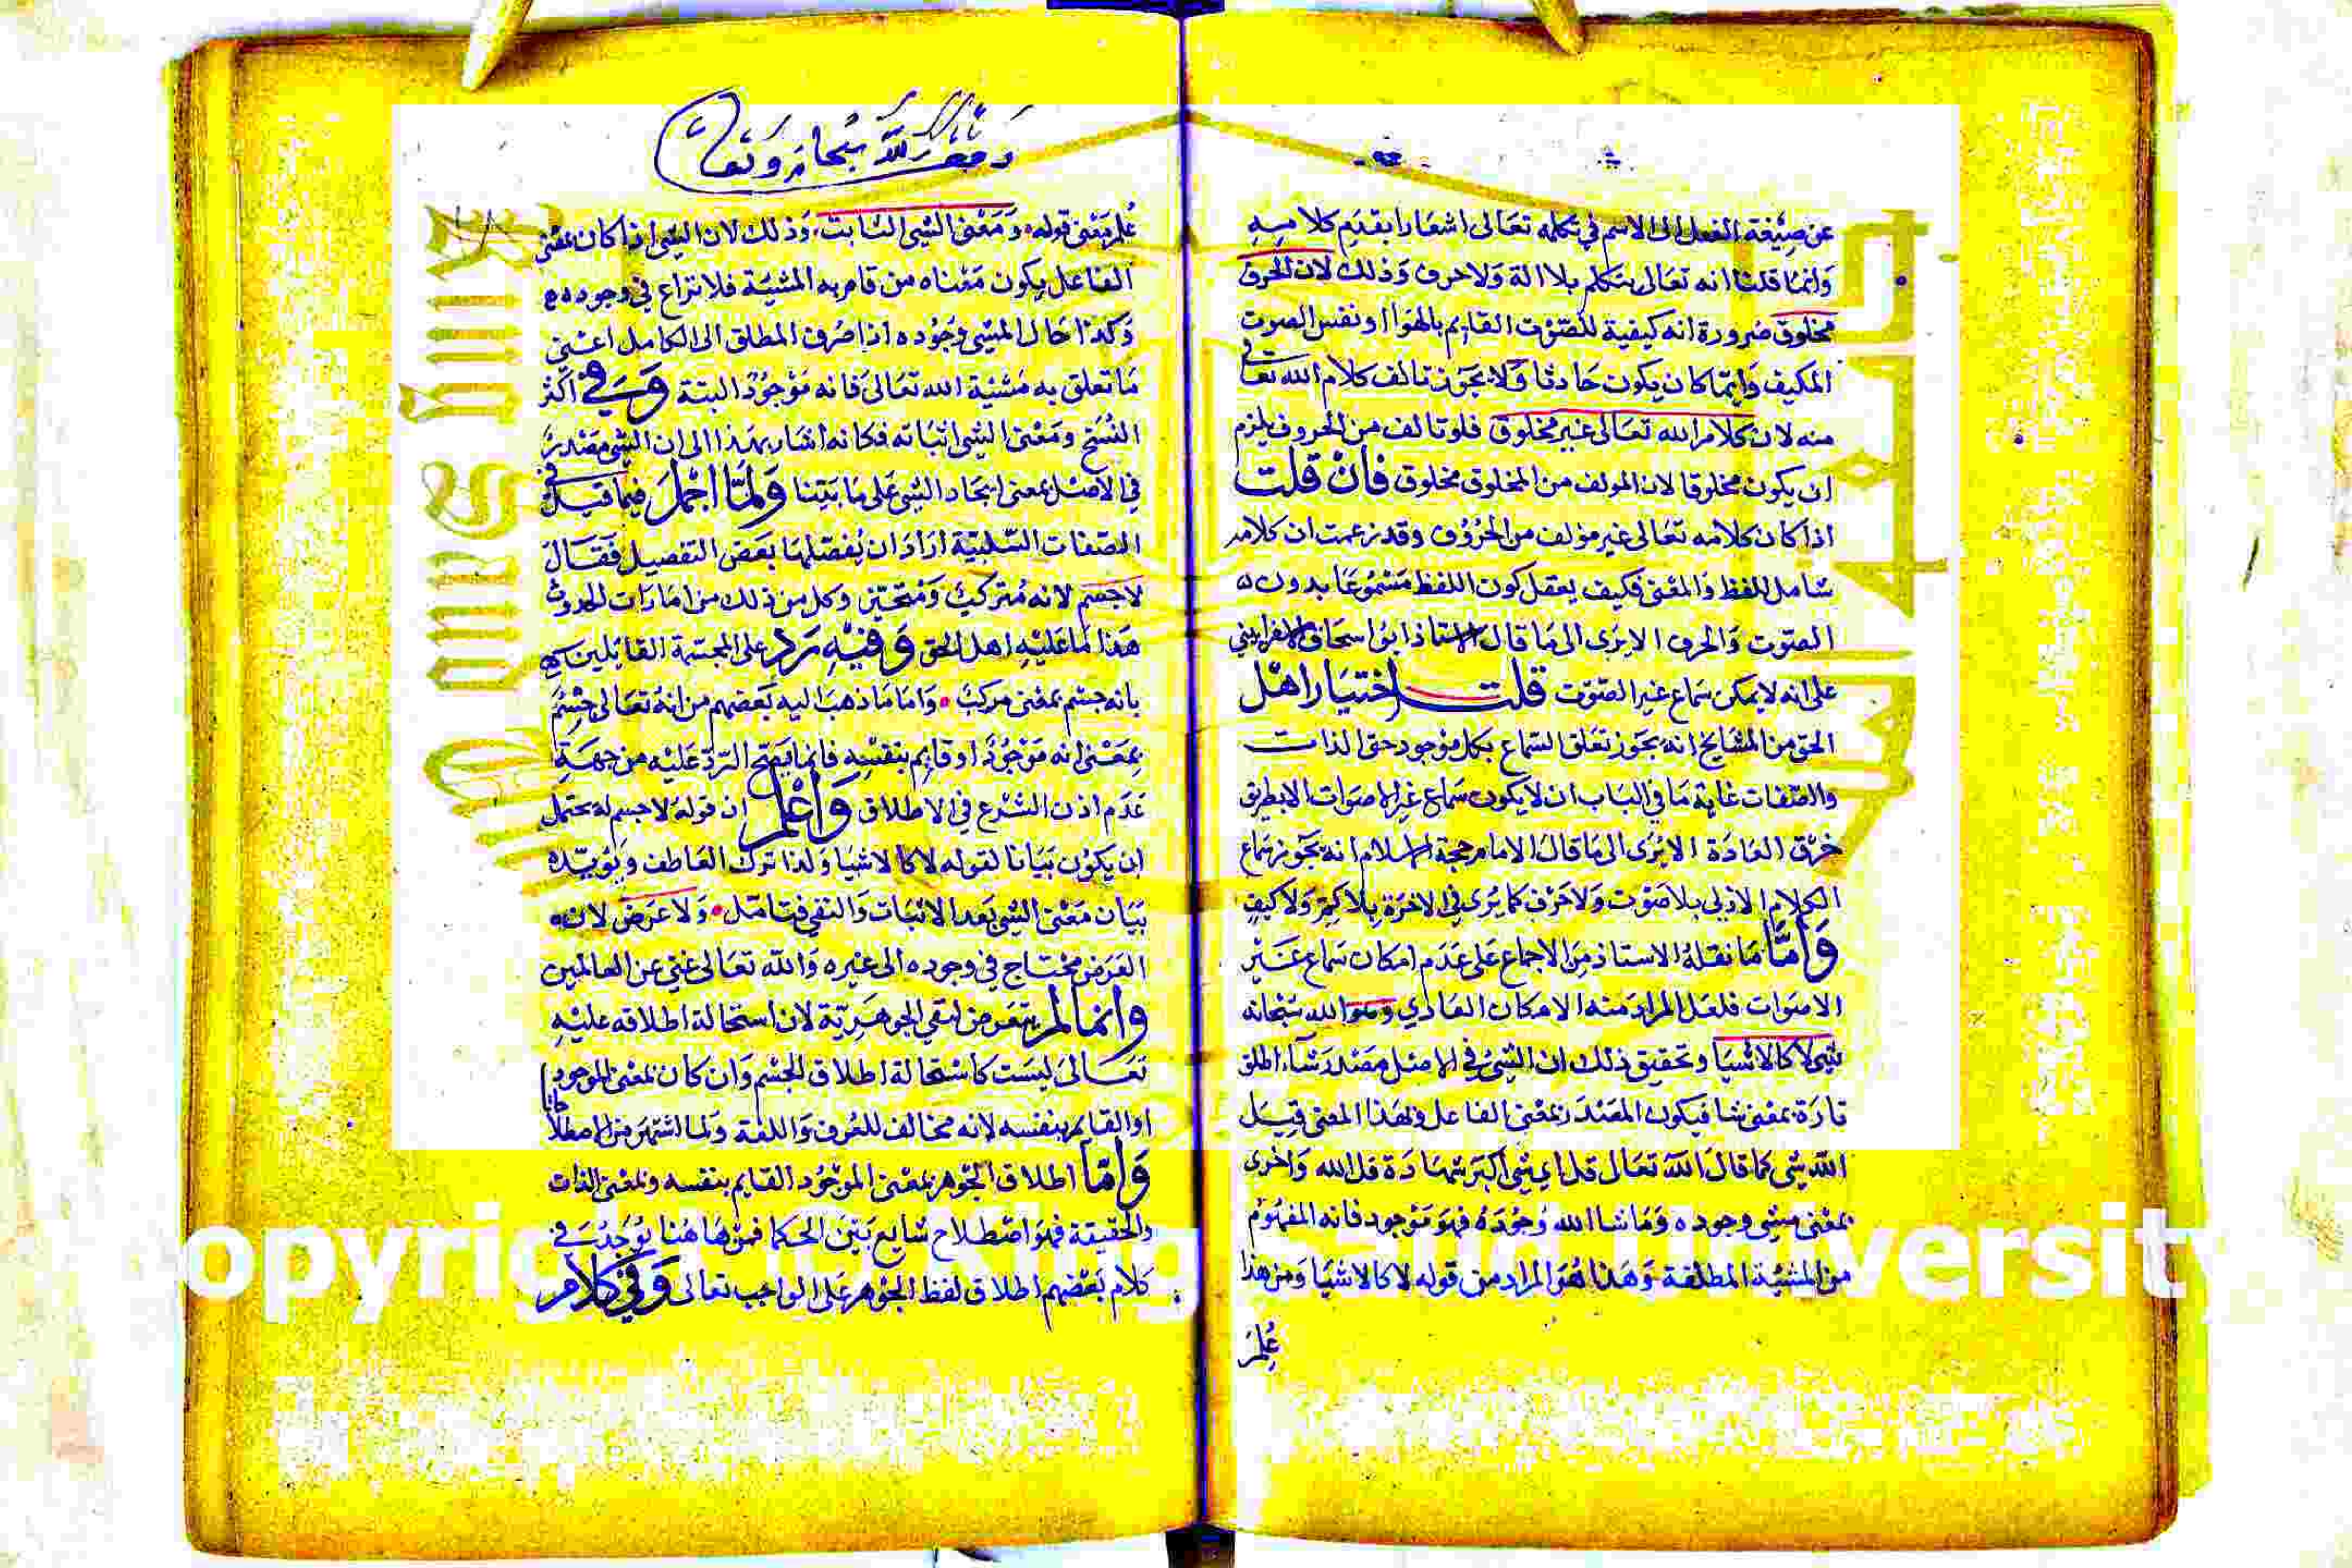 عن صيغة الفعل الى الاسم في تكلمه تعالى اشعارا بقدم كلاميه
وانما قلنا انه تعالى يتكلم بلا الة ولا حرف وذلك لان الحرف
مخلوق ضرورة انه كيفية للصوت القايم بالهوا او نفس الصوت
المكيف وايما كان يكون حادثا ولا يجوز تالف كلام الله تعالى
منه لان كلام الله تعالى غير مخلوق فلو تالف من الحروف يلزم
ان يكون مخلوقا لان المولف من المخلوق مخلوق فان قلت
اذا كان كلامه تعالى غير مولف من الحروف وقد زعمت ان كلامه
شامل للفظ والمعنى فكيف يعقل كون اللفظ مسموعا بدون
الصوت والحرف الا يرى الى ما قال الاستاذ ابو اسحاق الاسفرايني
على انه لا يمكن سماع غير الصوت قلت اختيار اهل
الحق من المشايخ انه يجوز تعلق السماع بكل موجود حتى الذات
والصفات غاية ما في الباب ان لا يكون سماع غير الاصوات الا بطريق
خرق العادة الا يرى الى ما قال الامام حجة الاسلام انه يجوز سماع
الكلام الازلى بلا صوت ولا حرف كما يرى في الاخرة بلا كم ولا كيف
واما ما نقله الاستاذ من الاجماع على عدم امكان سماع غير
الاصوات فلعل المراد منه الامكان العادي وهو الله سبحانه
شي لا كالاشيا وتحقيق ذلك ان الشي في الاصل مصدر شاء اطلق
تارة بمعنى شا فيكون المصدر بمعنى الفاعل وبهذا المعنى قيل
الله شي كما قال الله تعال قل اي شي اكبر شهادة قل الله واخرى
بمعنى مشي وجوده وما شا الله وجوده فهو موجود فانه المفهوم
من المشية المطلقة وهذا هو المراد من قوله لا كالاشيا ومن هذا
علم
وقف لله سبحانه وتعالى
علم معنى قوله ومعنى الشي الثابت وذلك لان الشي اذا كان بمعنى
الفاعل يكون معناه من قام به المشية فلا نزاع في وجوده
وكذا حال المشي وجوده اذا صرف المطلق الى الكامل اعنى
ما تعلق به مشية الله تعالى فانه موجود البتة وفي اكثر
النسخ ومعنى الشي اثباته فكانه اشار بهذا الى ان الشي مصدر
في الاصل بمعنى ايجاد الشي على ما بينا ولما اجمل فيما قبل في
الصفات السلبية اراد ان يفصلها بعض التفصيل فقال
لا جسم لانه متركب ومتحيز وكل من ذلك من امارات الحدوث
هذا ما عليه اهل الحق وفيه رد على المجسمة القايلين
بانه جسم بمعنى مركب واما ما ذهب اليه بعضهم من انه تعالى جسم
بمعنى انه موجود او قايم بنفسه فانما يصح الرد عليه من جهة
عدم اذن الشرع في الاطلاق واعلم ان قوله لا جسم له يحتمل
ان يكون بيانا لقوله لا كالاشيا ولذا ترك العاطف ويؤيده
بيان معنى الشي بعد الاثبات والنفي فتامل ولا عرض لان
العرض محتاج في وجوده الى غيره والله تعالى غني عن العالمين
وانما لم يتعرض لنفي الجوهرية لان استحالة اطلاقه عليه
تعالى ليست كاستحالة اطلاق الجسم وان كان بمعنى الموجود
او القايم بنفسه لانه مخالف للعرف واللغة ولما اشتهر من الاصطلاحات
واما اطلاق الجوهر بمعنى الموجود القايم بنفسه وبمعنى الذات
والحقيقة فهو اصطلاح شايع بين الحكما فمن هاهنا يوجد في
كلام بعضهم اطلاق لفظ الجوهر على الواجب تعالى وفي كلام
opyright © King Saud University